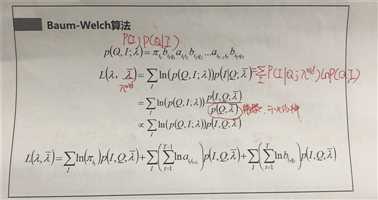 Baum-Welch算法
P(I) P(Q|I)
p(Q,I;λ) = π_{i₁} b_{i₁q₁} a_{i₁i₂} b_{i₂q₂} ... a_{i_{T-1}i_T} b_{i_Tq_T}
L(λ, λ̄) = ∑_I ln(p(Q,I;λ)) p(I|Q;λ̄) = ∑_I P(I|Q;λ^{old}) ln P(Q,I)
λ^{old}
= ∑_I ln(p(Q,I;λ)) p(I,Q;λ̄) / p(Q;λ̄)
∝ ∑_I ln(p(Q,I;λ)) p(I,Q;λ̄)
L(λ,λ̄) = ∑_I ln(π_{i₁}) p(I,Q;λ̄) + ∑_I (∑_{t=1}^{T-1} ln a_{i_t i_{t+1}}) p(I,Q;λ̄) + ∑_I (∑_{t=1}^{T} ln b_{i_t q_t}) p(I,Q;λ̄)